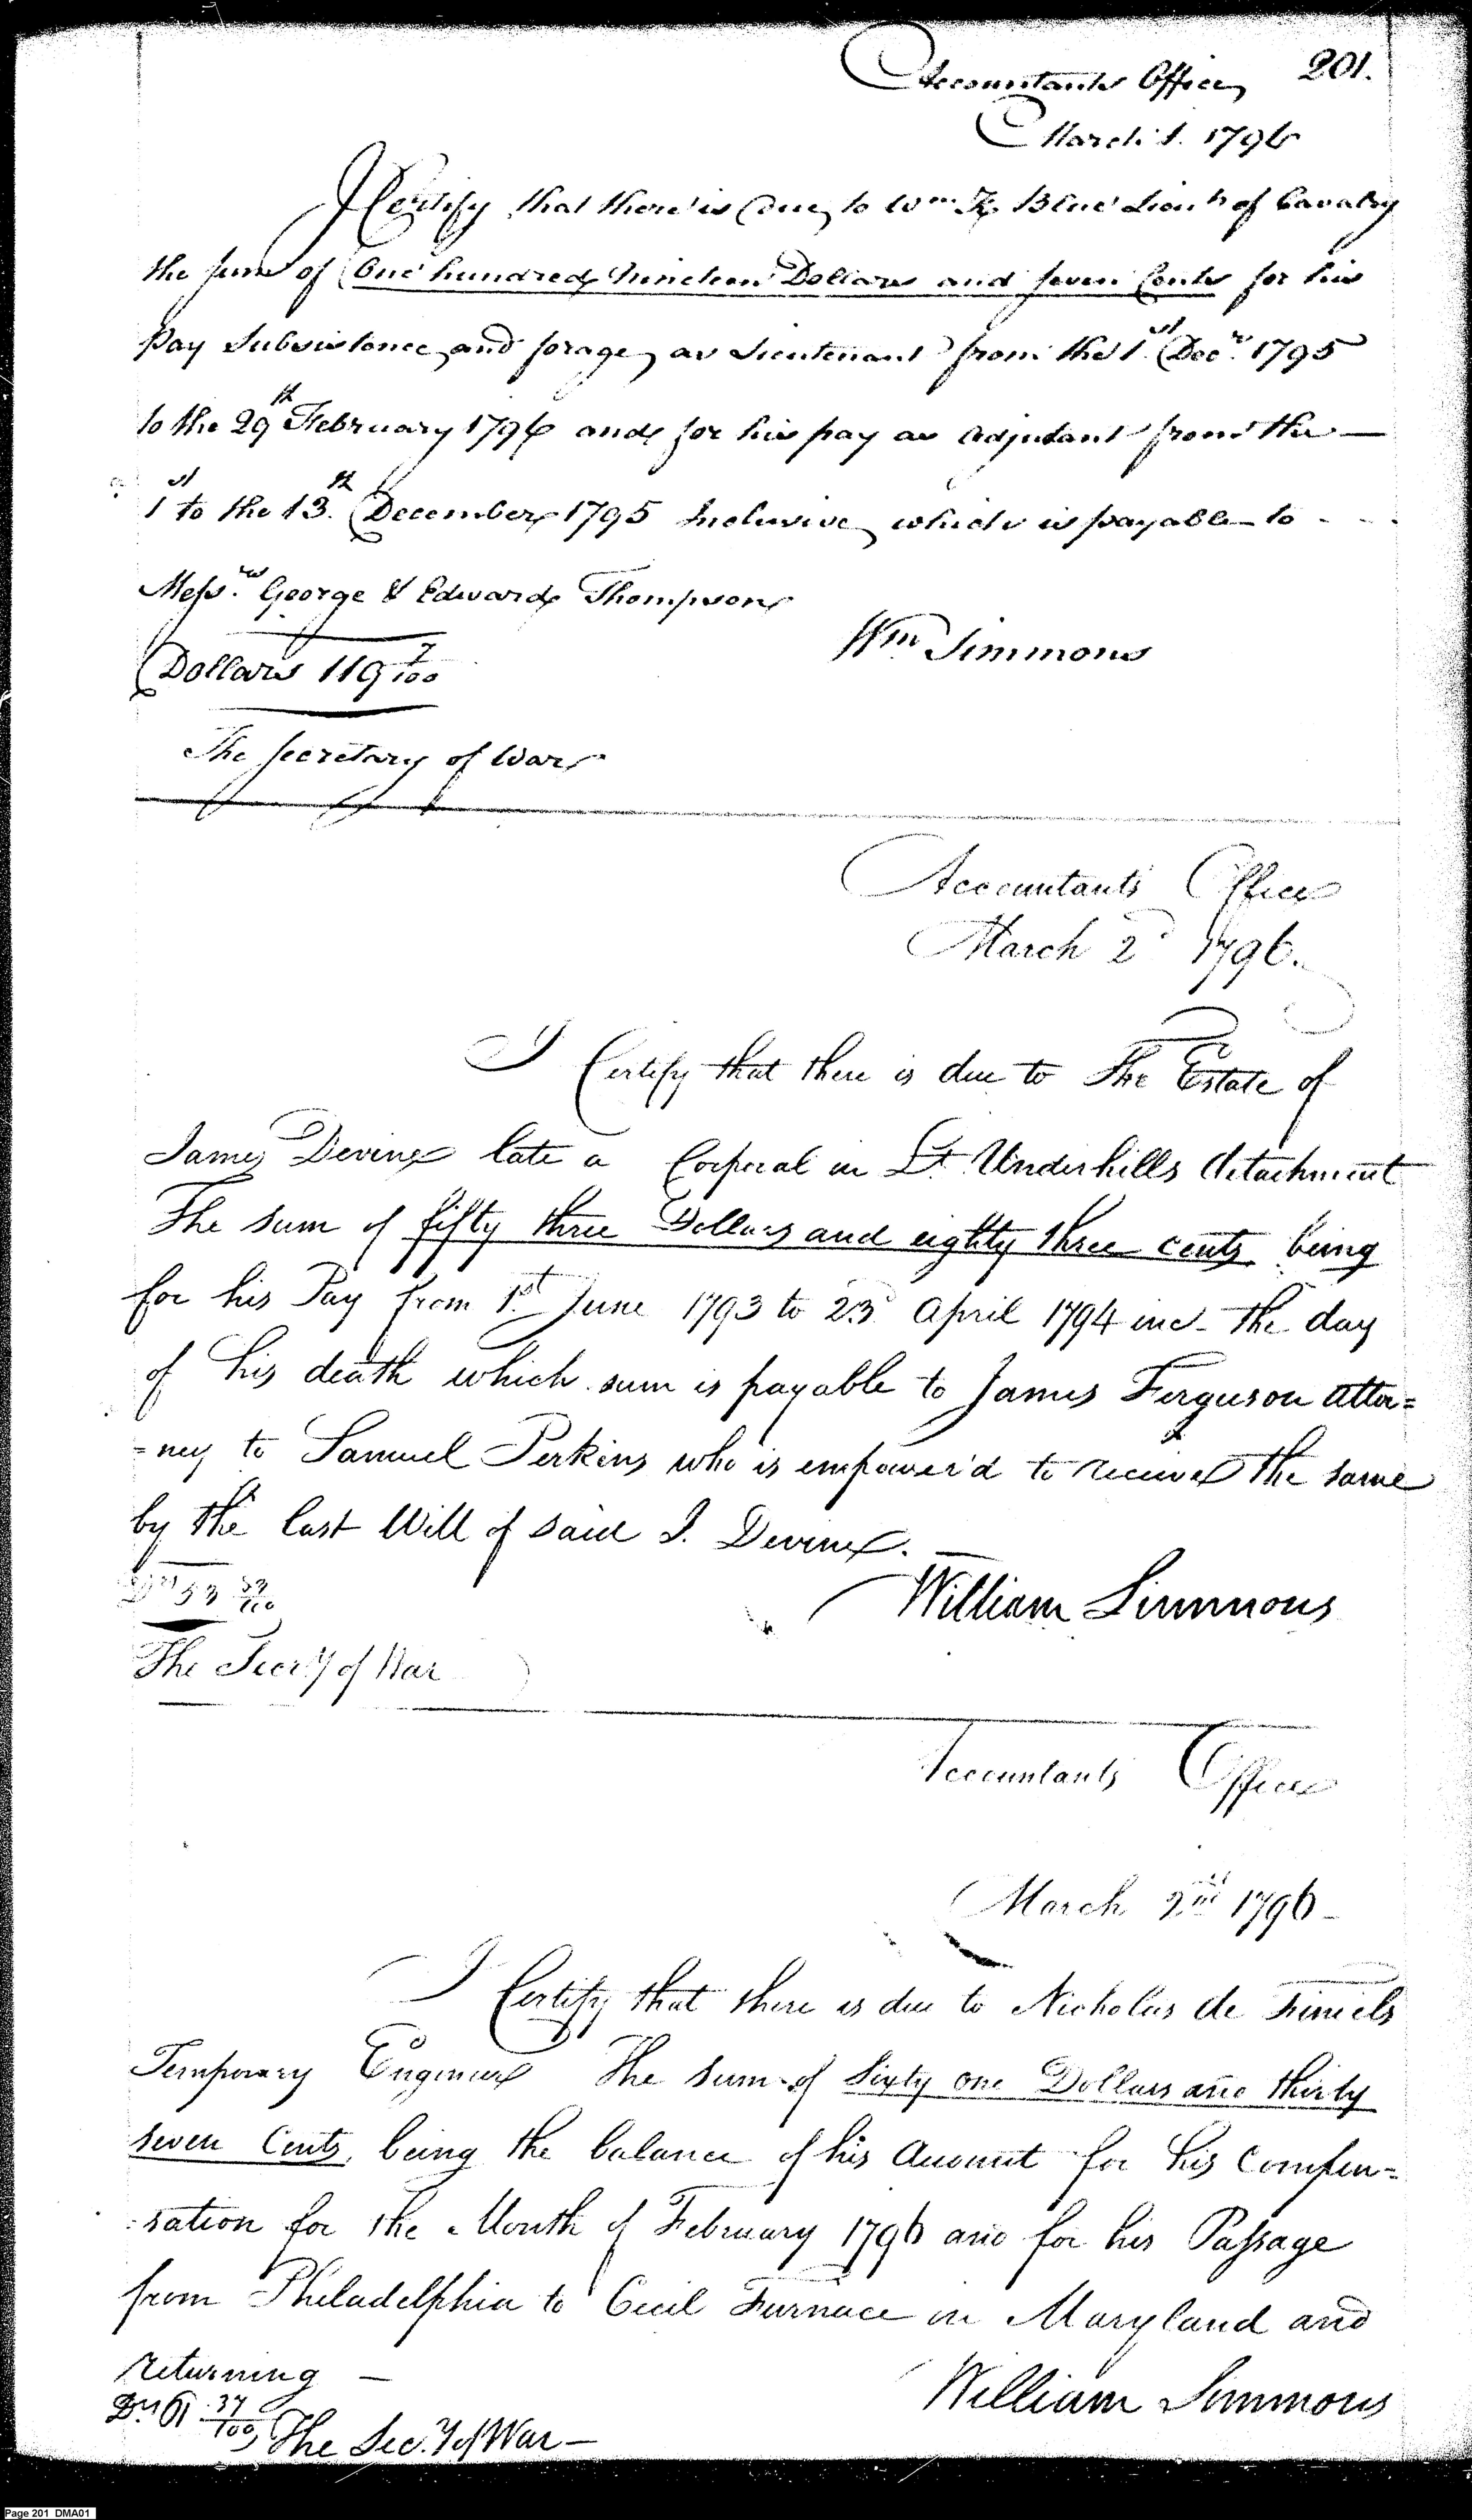 Accountants Office 201.
March 1. 1796
I Certify that there is due to Wm K. Blue Lieut. of Cavalry
the sum of One hundred Nineteen Dollars and seven Cents for his
Pay Subsistence and forage as Lieutenant from the 1st Decr. 1795
to the 29th February 1796 and for his pay as Adjutant from the —
1st to the 13th December 1795 Inclusive, which is payable to - - -
Messrs. George & Edward Thompson
Wm Simmons
Dollars 119 7/100
The Secretary of War
Accountants Office
March 2d 1796.
I Certify that there is due to The Estate of
James Devine late a Corporal in Lt. Underhills detachment
The sum of fifty three Dollars and eighty three cents being
for his Pay from 1st June 1793 to 23d April 1794 inc. the day
of his death which sum is payable to James Ferguson attor=
=ney to Samuel Perkins who is empower'd to receive the same
by the last Will of said J. Devine. —
William Simmons
Drs 53 83/100
The Secr'y of War
Accountants Office
March 2nd 1796 -
I Certify that there is due to Nicholas de Finiels
Temporary Engineer The sum of Sixty one Dollars and thirty
seven Cents, being the balance of his Account for his compen=
:sation for the Month of February 1796 and for his Passage
from Philadelphia to Cecil Furnace in Maryland and
returning —
William Simmons
Drs 61 37/100
The Sec.y of War —
Page 201 DMA01